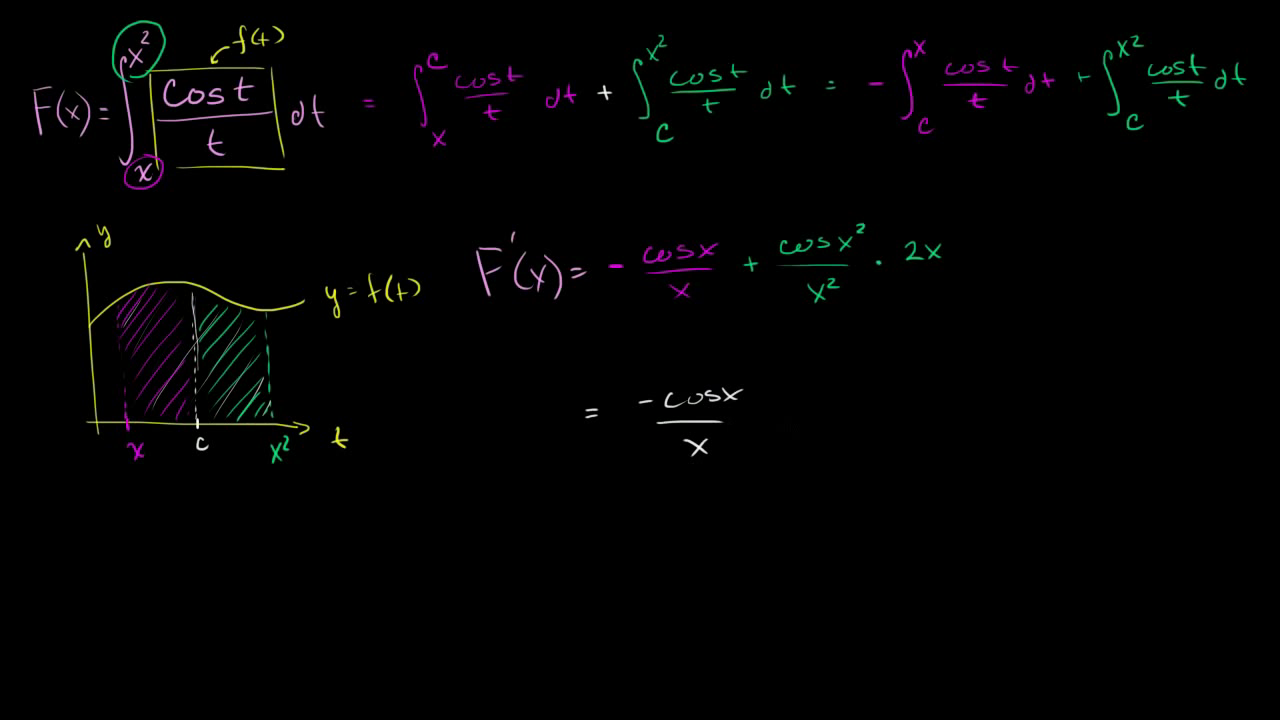 f(t)
F(x) = ∫ₓ^x² cos t / t dt = ∫ₓ^c cos t / t dt + ∫_c^x² cos t / t dt = - ∫_c^x cos t / t dt + ∫_c^x² cos t / t dt
y
y = f(t)
F'(x) = - cos x / x + cos x² / x² · 2x
= - cos x / x
x c x² t